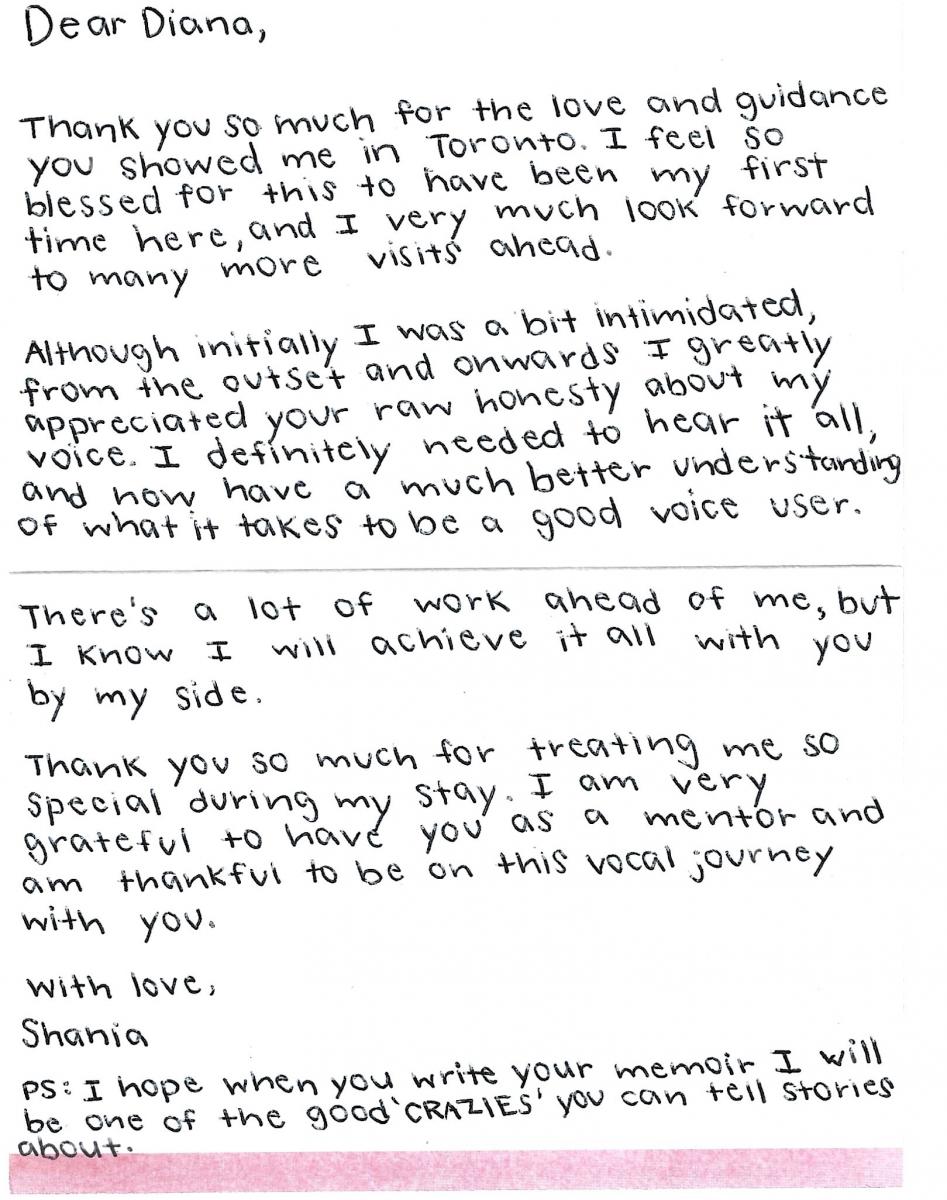 Dear Diana,
Thank you so much for the love and guidance
you showed me in Toronto. I feel so
blessed for this to have been my first
time here, and I very much look forward
to many more visits ahead.
Although initially I was a bit intimidated,
from the outset and onwards I greatly
appreciated your raw honesty about my
voice. I definitely needed to hear it all,
and now have a much better understanding
of what it takes to be a good voice user.
There's a lot of work ahead of me, but
I know I will achieve it all with you
by my side.
Thank you so much for treating me so
special during my stay. I am very
grateful to have you as a mentor and
am thankful to be on this vocal journey
with you.
With love,
Shania
PS: I hope when you write your memoir I will
be one of the good 'CRAZIES' you can tell stories
about.